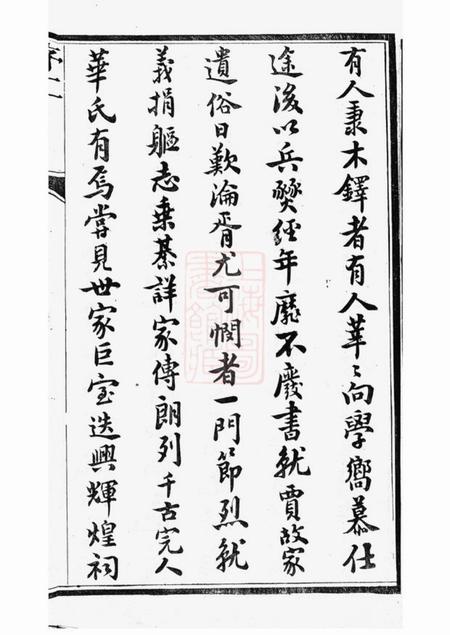 有人秉木鐸者有人莘〻向學嚮慕仕
途後以兵燹經年靡不廢書就賈故家
遺俗日歎淪胥尤可憫者一門節烈就
義捐軀志乘綦詳家傳朗列千古完人
華氏有焉嘗見世家巨室迭興輝煌祠